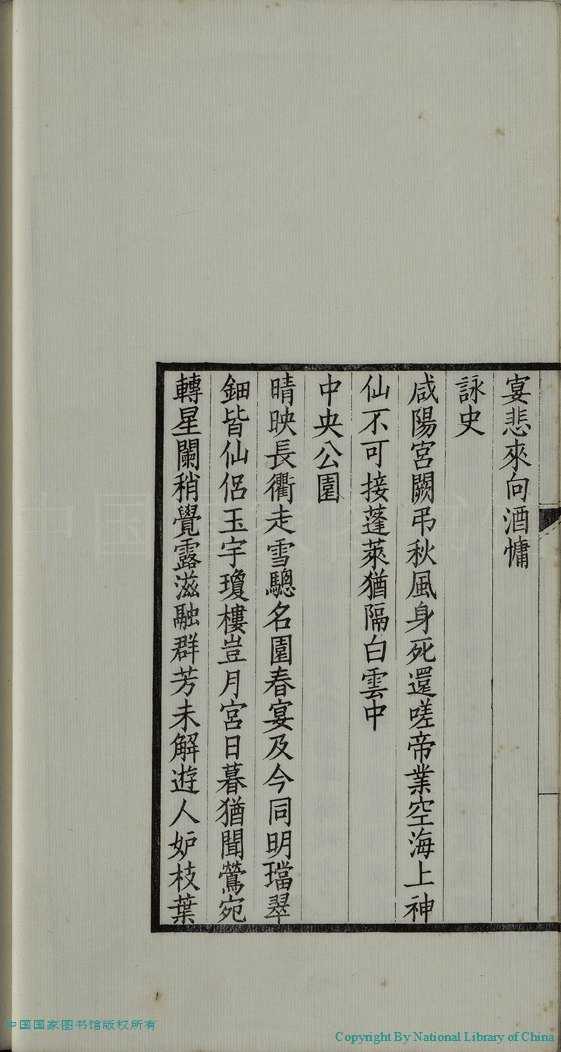 宴悲來向酒慵
詠史
咸陽宮闕弔秋風身死還嗟帝業空海上神
仙不可接蓬萊猶隔白雲中
中央公園
晴映長衢走雪驄名園春宴及今同明璫翠
鈿皆仙侶玉宇瓊樓豈月宮日暮猶聞鶯宛
轉星闌稍覺露滋融群芳未解遊人妒枝葉
中国国家图书馆版权所有
Copyright By National Library of China